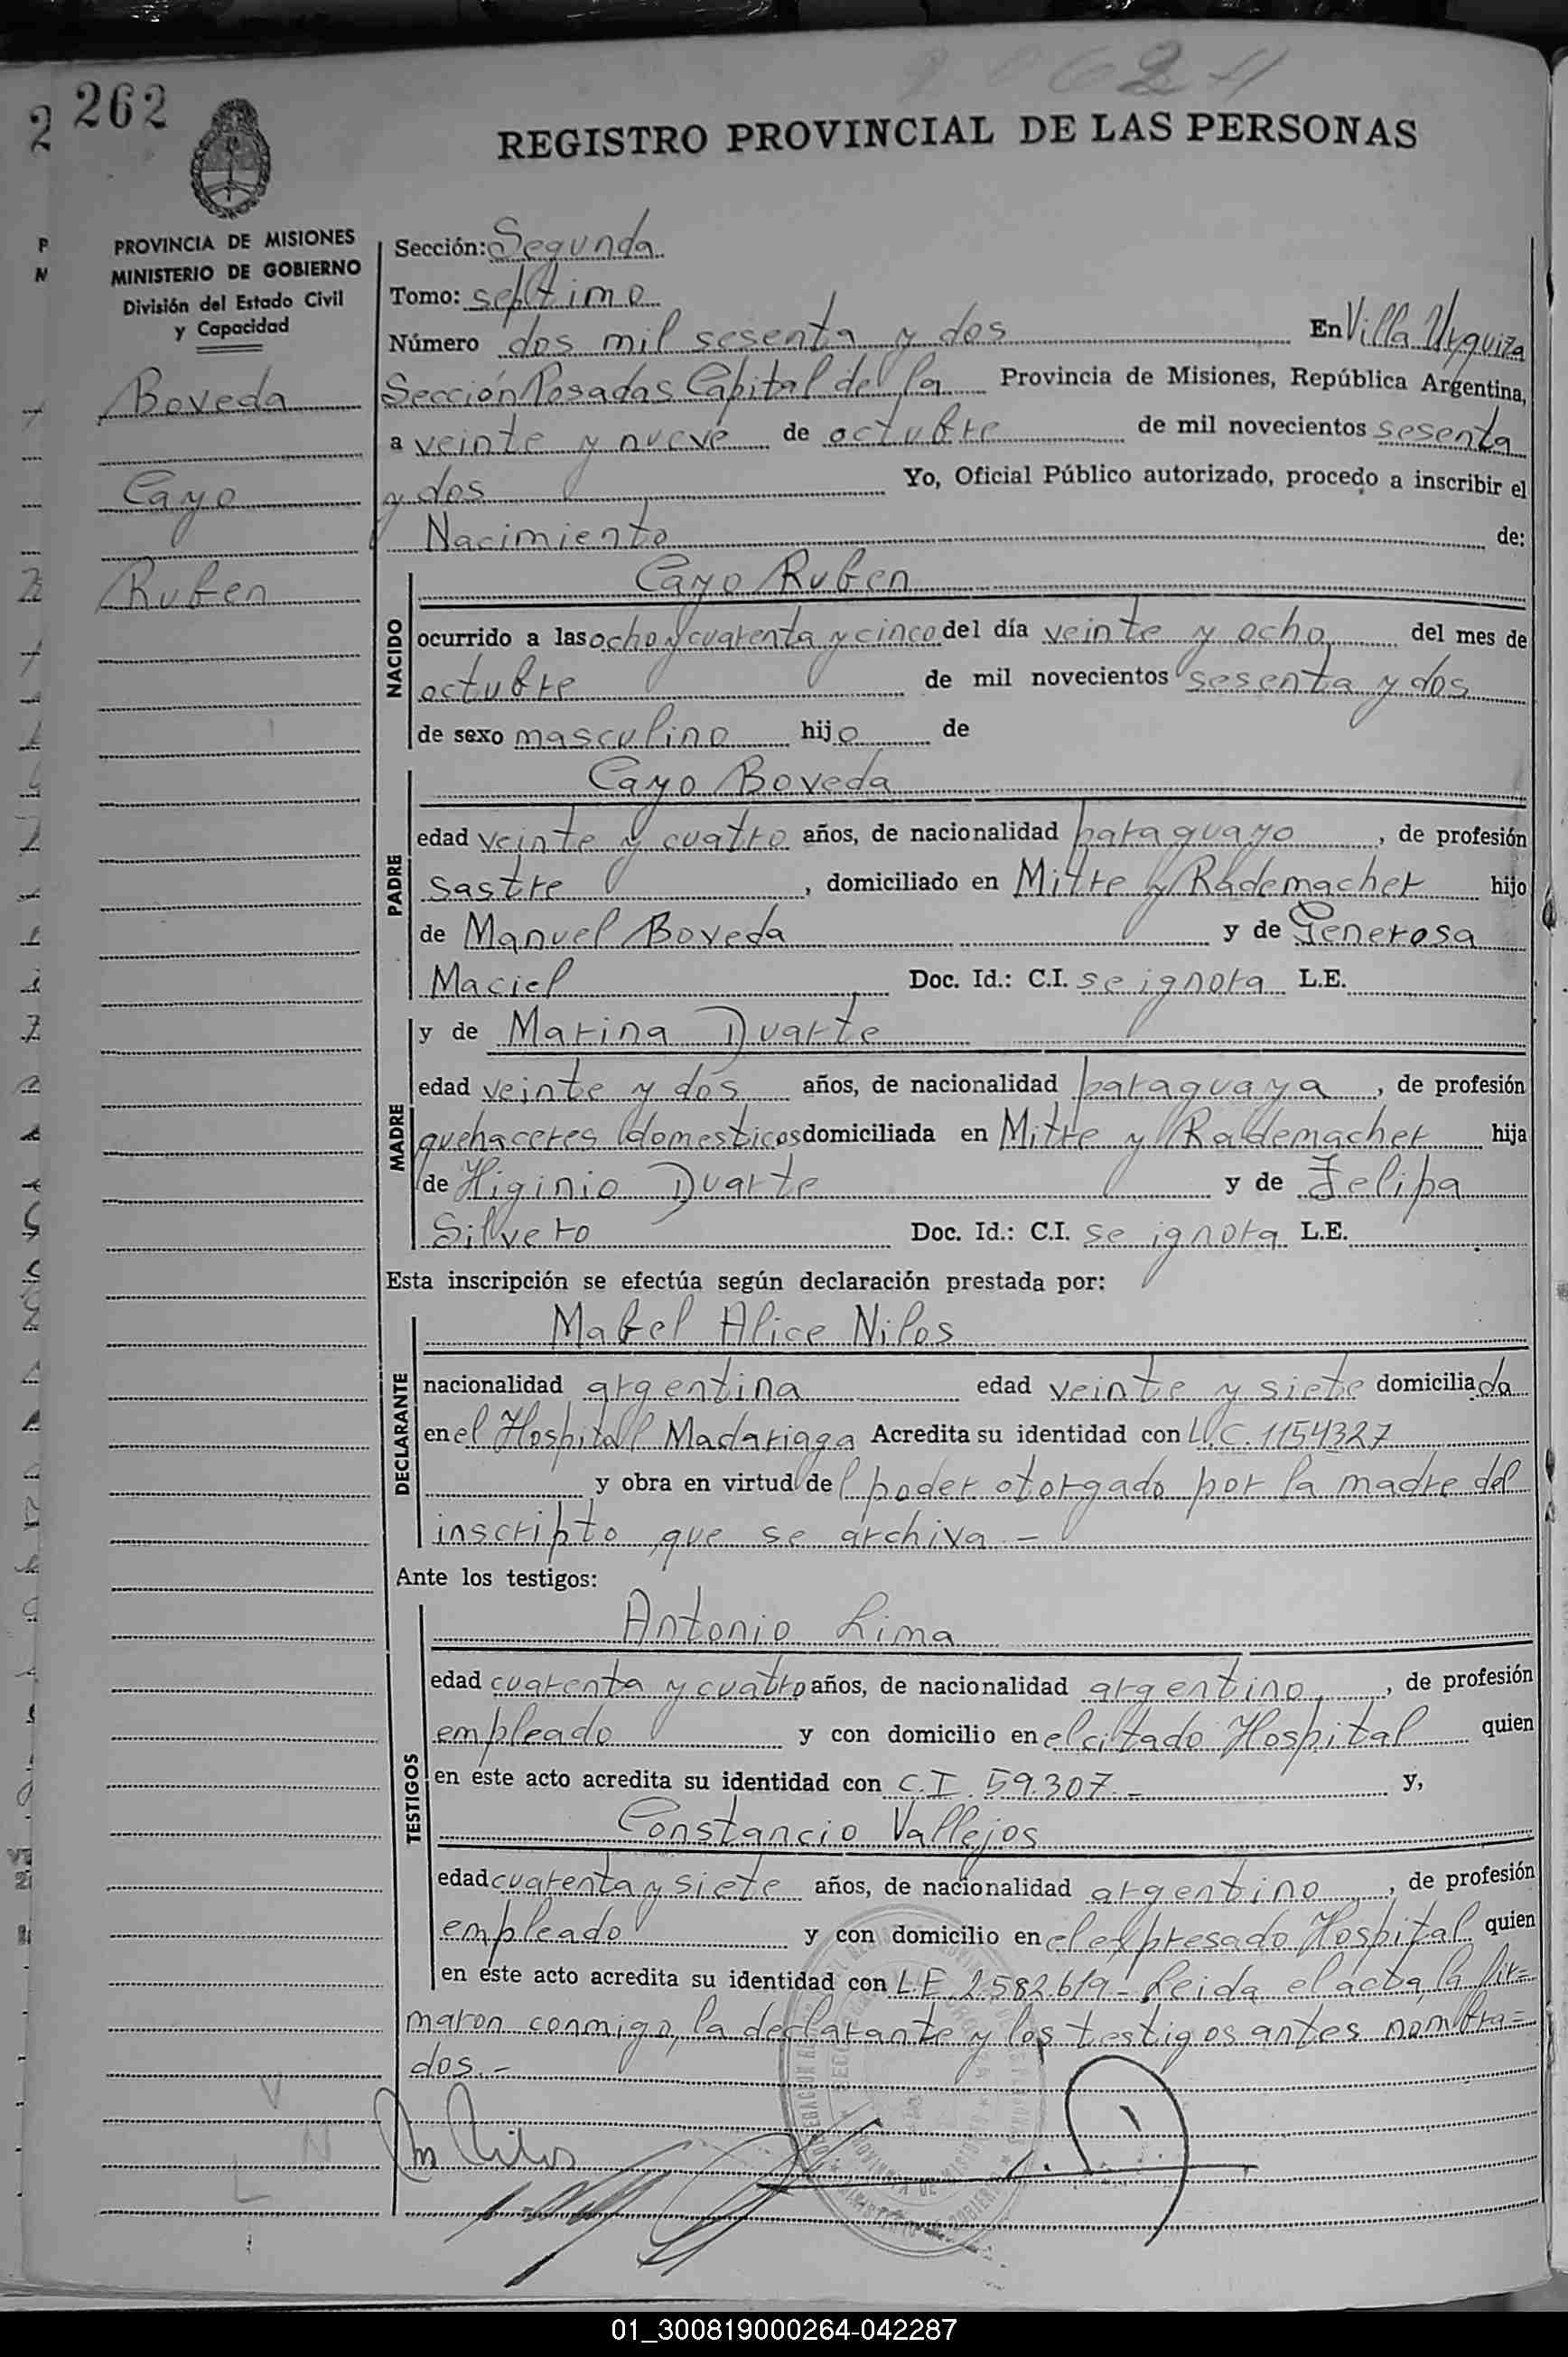 262
REGISTRO PROVINCIAL DE LAS PERSONAS
PROVINCIA DE MISIONES
MINISTERIO DE GOBIERNO
División del Estado Civil
y Capacidad
Boveda
Cayo
Ruben
Sección: Segunda
Tomo: septimo
Número dos mil sesenta y dos En Villa Urquiza
Sección Posadas Capital de la Provincia de Misiones, República Argentina,
a veinte y nueve de octubre de mil novecientos sesenta
y dos Yo, Oficial Público autorizado, procedo a inscribir el
Nacimiento de:
NACIDO
Cayo Ruben
ocurrido a las ocho y cuarenta y cinco del día veinte y ocho del mes de
octubre de mil novecientos sesenta y dos
de sexo masculino hijo de
PADRE
Cayo Boveda
edad veinte y cuatro años, de nacionalidad paraguayo, de profesión
sastre, domiciliado en Mitre y Rademacher hijo
de Manuel Boveda y de Generosa
Maciel Doc. Id.: C.I. se ignora L.E.
MADRE
y de Marina Duarte
edad veinte y dos años, de nacionalidad paraguaya, de profesión
quehaceres domesticos domiciliada en Mitre y Rademacher hija
de Higinio Duarte y de Felipa
Silvero Doc. Id.: C.I. se ignora L.E.
Esta inscripción se efectúa según declaración prestada por:
DECLARANTE
Mabel Alice Nilos
nacionalidad argentina edad veinte y siete domiciliada
en el Hospital Madariaga Acredita su identidad con L.C. 1154327
y obra en virtud del poder otorgado por la madre del
inscripto que se archiva -
Ante los testigos:
TESTIGOS
Antonio Lima
edad cuarenta y cuatro años, de nacionalidad argentino, de profesión
empleado y con domicilio en el citado Hospital quien
en este acto acredita su identidad con C.I. 59.307.- y,
Constancio Vallejos
edad cuarenta y siete años, de nacionalidad argentino, de profesión
empleado y con domicilio en el expresado Hospital quien
en este acto acredita su identidad con L.E. 2.582.619- Leida el acta, la fir=
maron conmigo, la declarante y los testigos antes nombra=
dos.-
01_300819000264-042287